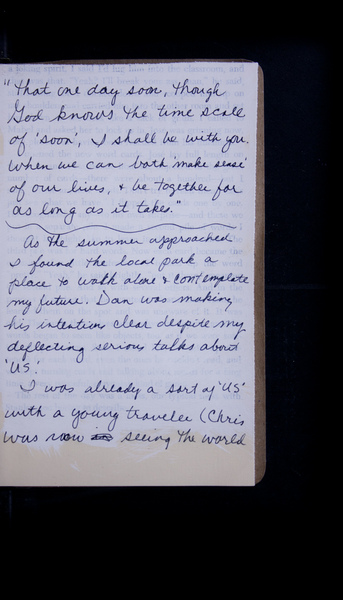 "that one day soon, though
God knows the time scale
of 'soon', I shall be with you.
When we can both 'make sense'
of our lives, & be together for
as long as it takes."
As the summer approached
I found the local park a
place to walk alone & contemplate
my future. Dan was making
his intentions clear despite my
deflecting serious talks about
'US'.
I was already a sort of 'US'
with a young traveler (Chris
was now seeing the world